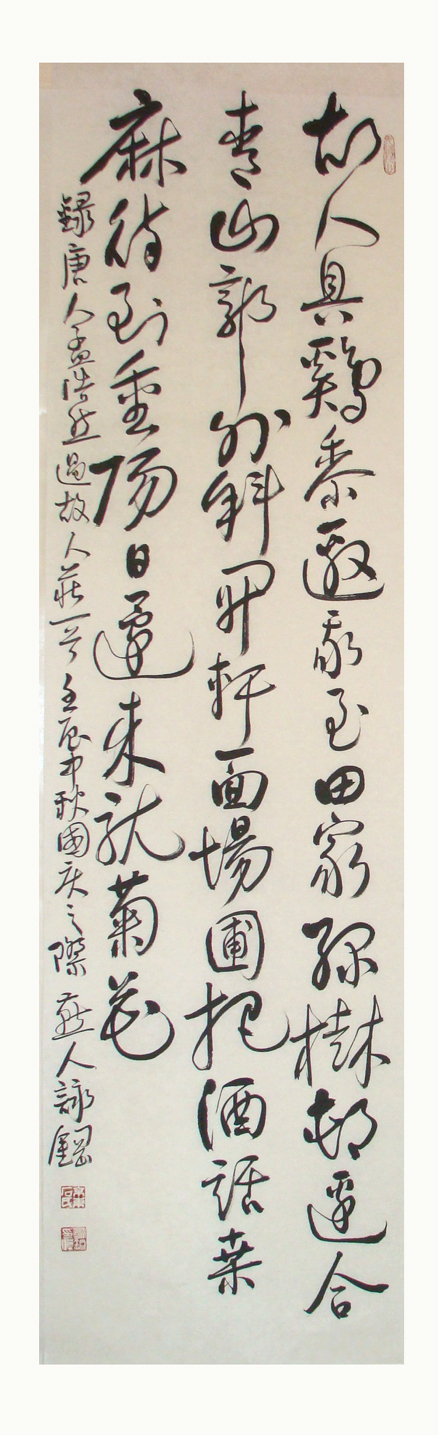 故人具鷄黍邀我至田家綠樹邨邊合
青山郭外斜開軒面場圃把酒話桑
麻待到重陽日還來就菊花
錄唐人孟浩然過故人莊一首 壬辰中秋國庆之際 燕人詠鋼